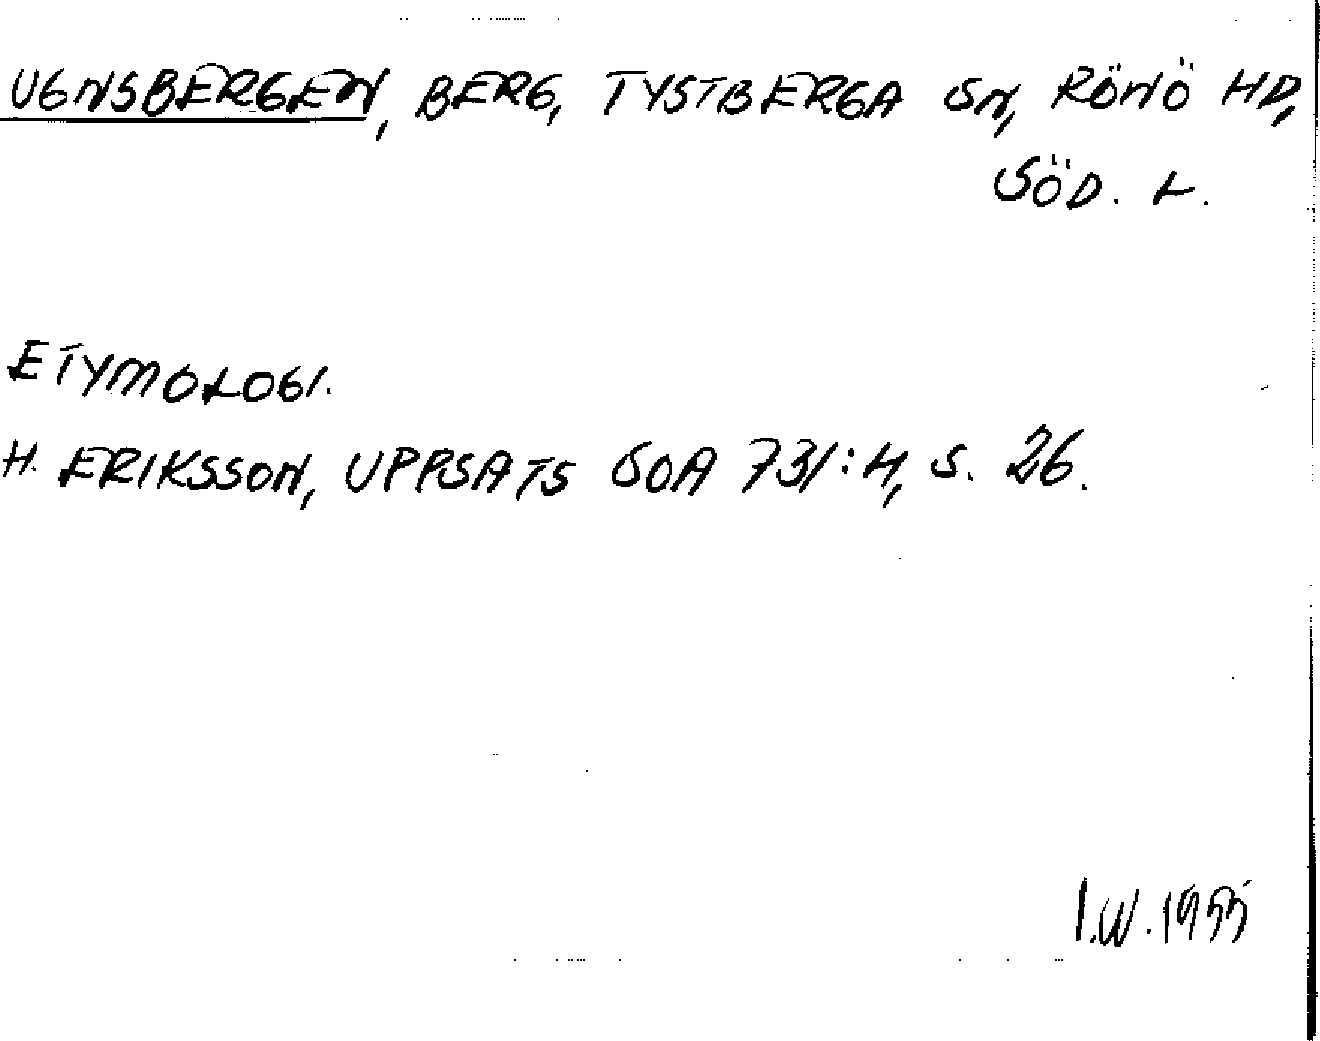 UGNSBERGEN, BERG, TYSTBERGA SN, RÖNÖ HD,
SÖD. L.
ETYMOLOGI.
H. ERIKSSON, UPPSATS SOA 731:4, S. 26.
I.W. 1955